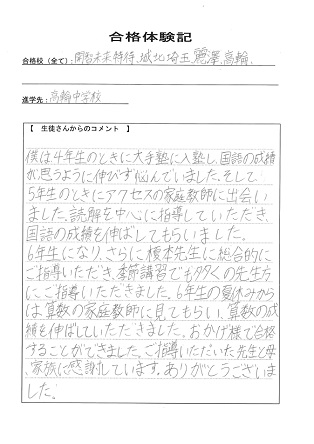 合格体験記
合格校（全て）：開智未来特待、城北埼玉、麗澤、高輪、
進学先：高輪中学校
【 生徒さんからのコメント 】
僕は4年生のときに大手塾に入塾し、国語の成績
が思うように伸びず悩んでいました。そして
5年生のときにアクセスの家庭教師に出会い
ました。読解を中心に指導していただき、
国語の成績を伸ばしてもらいました。
6年生になり、さらに榎本先生に総合的に
ご指導いただき、季節講習でも多くの先生方
にご指導いただきました。6年生の夏休みから
は算数の家庭教師に見てもらい、算数の成
績を伸ばしていただきました。おかげ様で合格
することができました。ご指導いただいた先生と母、
家族に感謝しています。ありがとうございま
した。